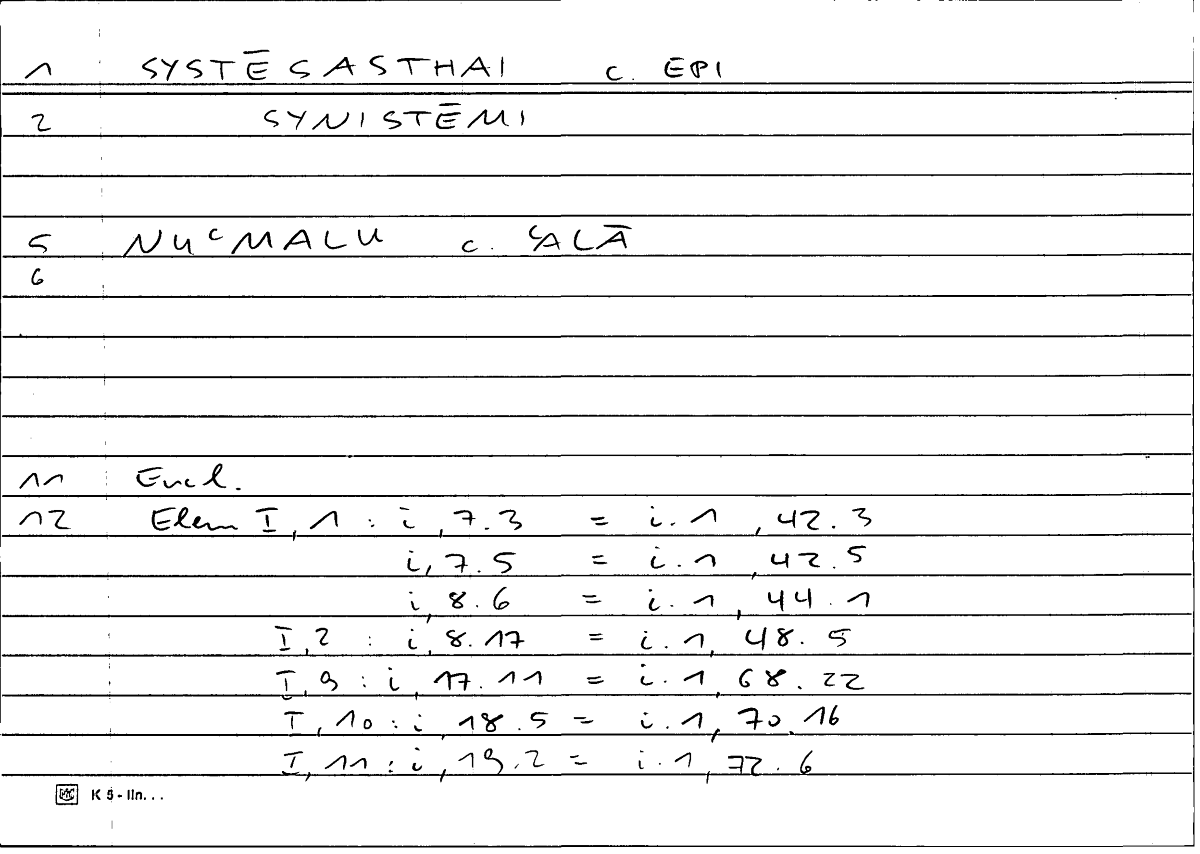 1 SYSTĒSASTHAI c. EPI
2 SYNISTĒMI
5 NUʿMALU c. ʿALĀ
6
11 Eucl.
12 Elem I, 1 : i, 7.3 = i.1, 42.3
i, 7.5 = i.1, 42.5
i, 8.6 = i.1, 44.1
I, 2 : i, 8.17 = i.1, 48.5
I, 9 : i, 17.11 = i.1, 68.22
I, 10 : i, 18.5 = i.1, 70.16
I, 11 : i, 19.2 = i.1, 72.6
K 5 - lin...